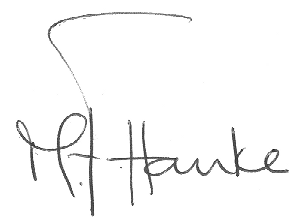 M.J. Hanke